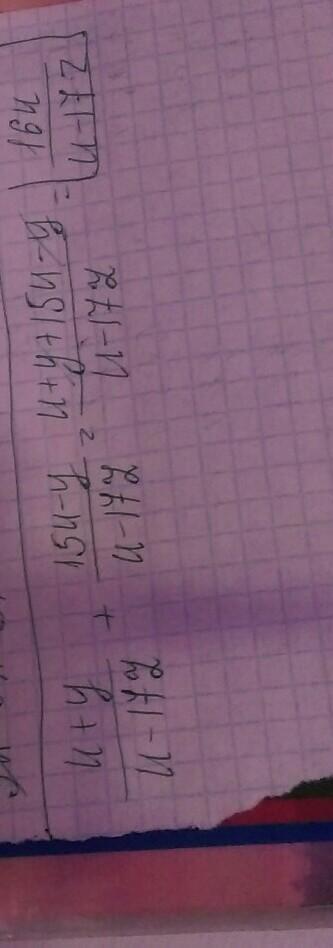 u+y/u-17z + 15u-y/u-17z = u+y+15u-y/u-17z = 16u/u-17z